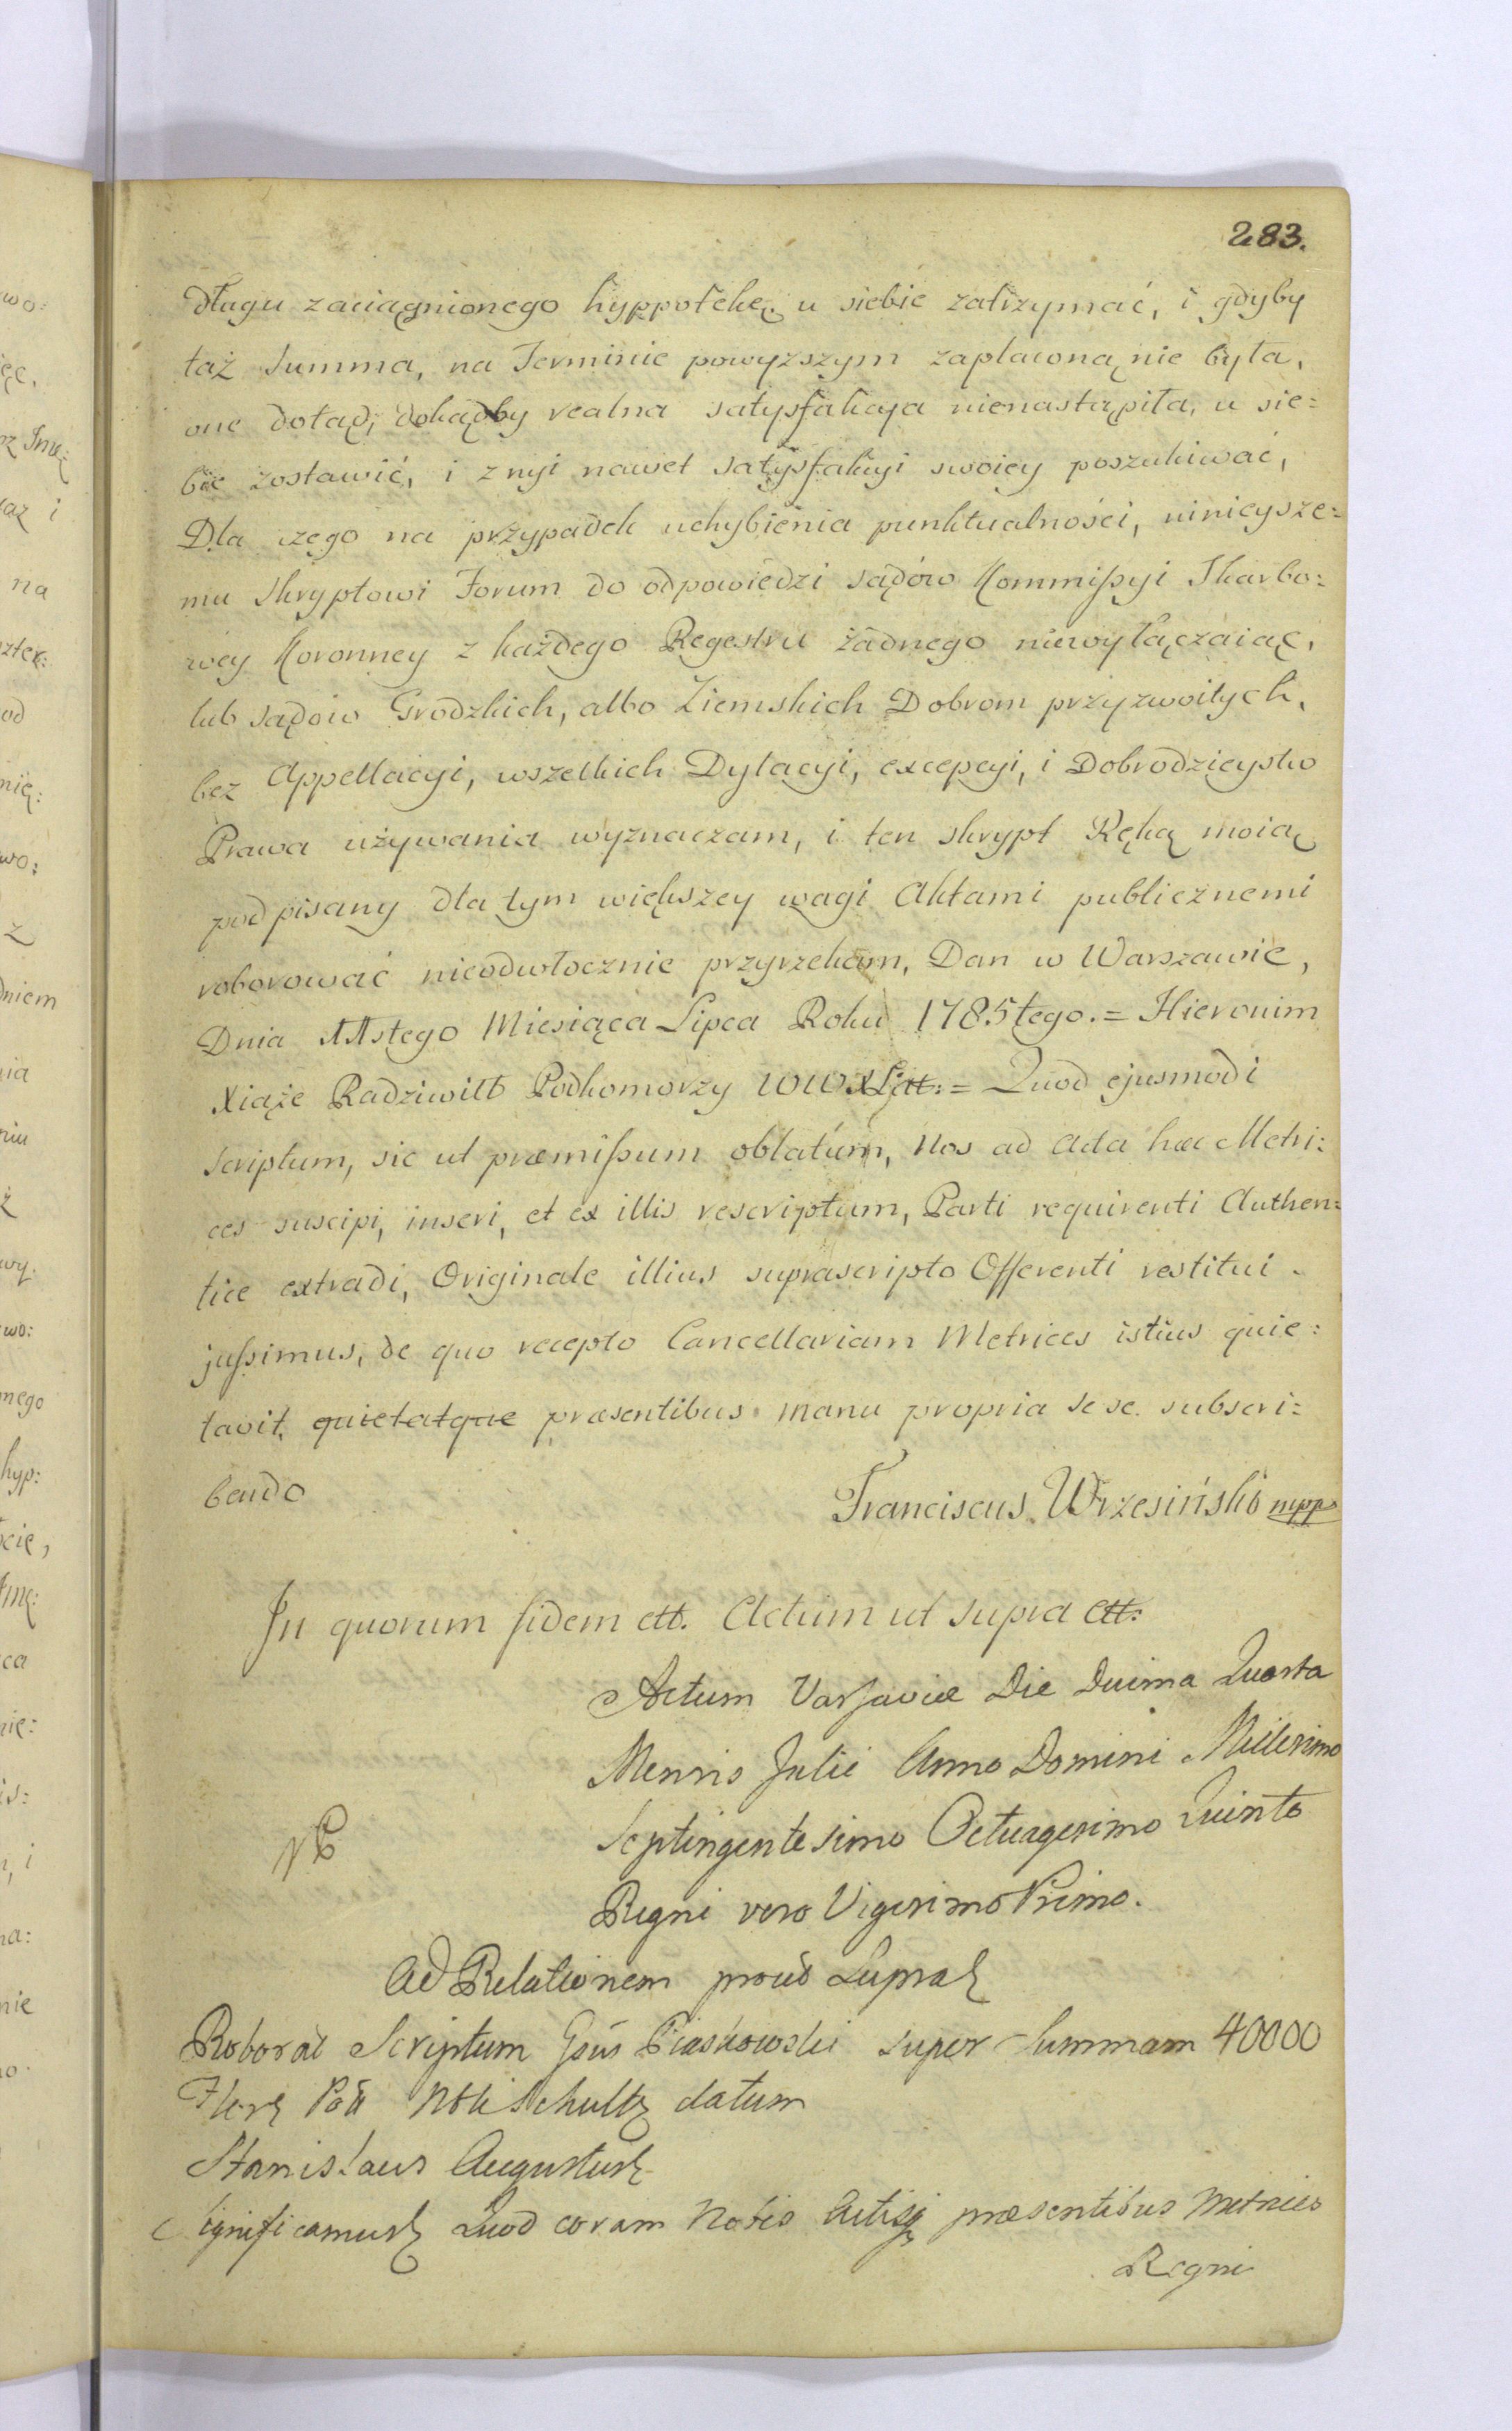 283.
długu zaciągnionego hyppotekę u siebie zatrzymać, i gdyby
taż Summa, na Terminie powyższym zapłaconą nie była,
one dotąd, dokądby realna satysfakcya nienastąpiła, u sie=
bie zostawić, i z nyi nawet satysfakcyi swoiey poszukiwać,
Dla czego na przypadek uchybienia punktualności, ninieysze=
mu skryptowi Forum do odpowiedzi sądów Kommissyi Skarbo=
wey Koronney z każdego Regestru żadnego niewyłączaiąc,
lub sądow Grodzkich, albo Ziemskich Dobrom przyzwoitych,
bez Appellacyi, wszelkich Dylacyi, excepcyi, i Dobrodzieystw
Prawa używania wyznaczam, i ten skrypt Ręką moią
podpisany dla tym większey wagi Aktami publicznemi
roborować nieodwłocznie przyrzekam, Dan w Warszawie,
Dnia 11stego Miesiąca Lipca Roku 1785tego. = Hieronim
Xiąże Radziwiłł Podkomorzy WWXLitt: = Quod ejusmodi
scriptum, sic ut præmissum oblatum, Nos ad Acta hæc Metri=
ces suscipi, inseri, et ex illis rescriptum, Parti requirenti Authen=
tice extradi, Originale illius suprascripto Offerenti restitui
jussimus, de quo recepto Cancellariam Metrices istius quie=
tavit, quietatque præsentibus manu propria se se subscri=
bendo
Franciscus Wrzesiński mpp
In quorum fidem ett. Actum ut supra ett:
Actum Varsaviæ Die Decima Quarta
Mensis Julii Anno Domini Millesimo
Septingentesimo Octuagesimo Quinto
Regni vero Vigesimo Primo.
Ad Relationem prout Supra
Roborat Scriptum Gsus Piaskowski super Summam 40000
Flor Pol Nbli Schultz datum
Stanislaus Augustus
Significamus Quod coram Nobis Actisq præsentibus Metrices
Regni